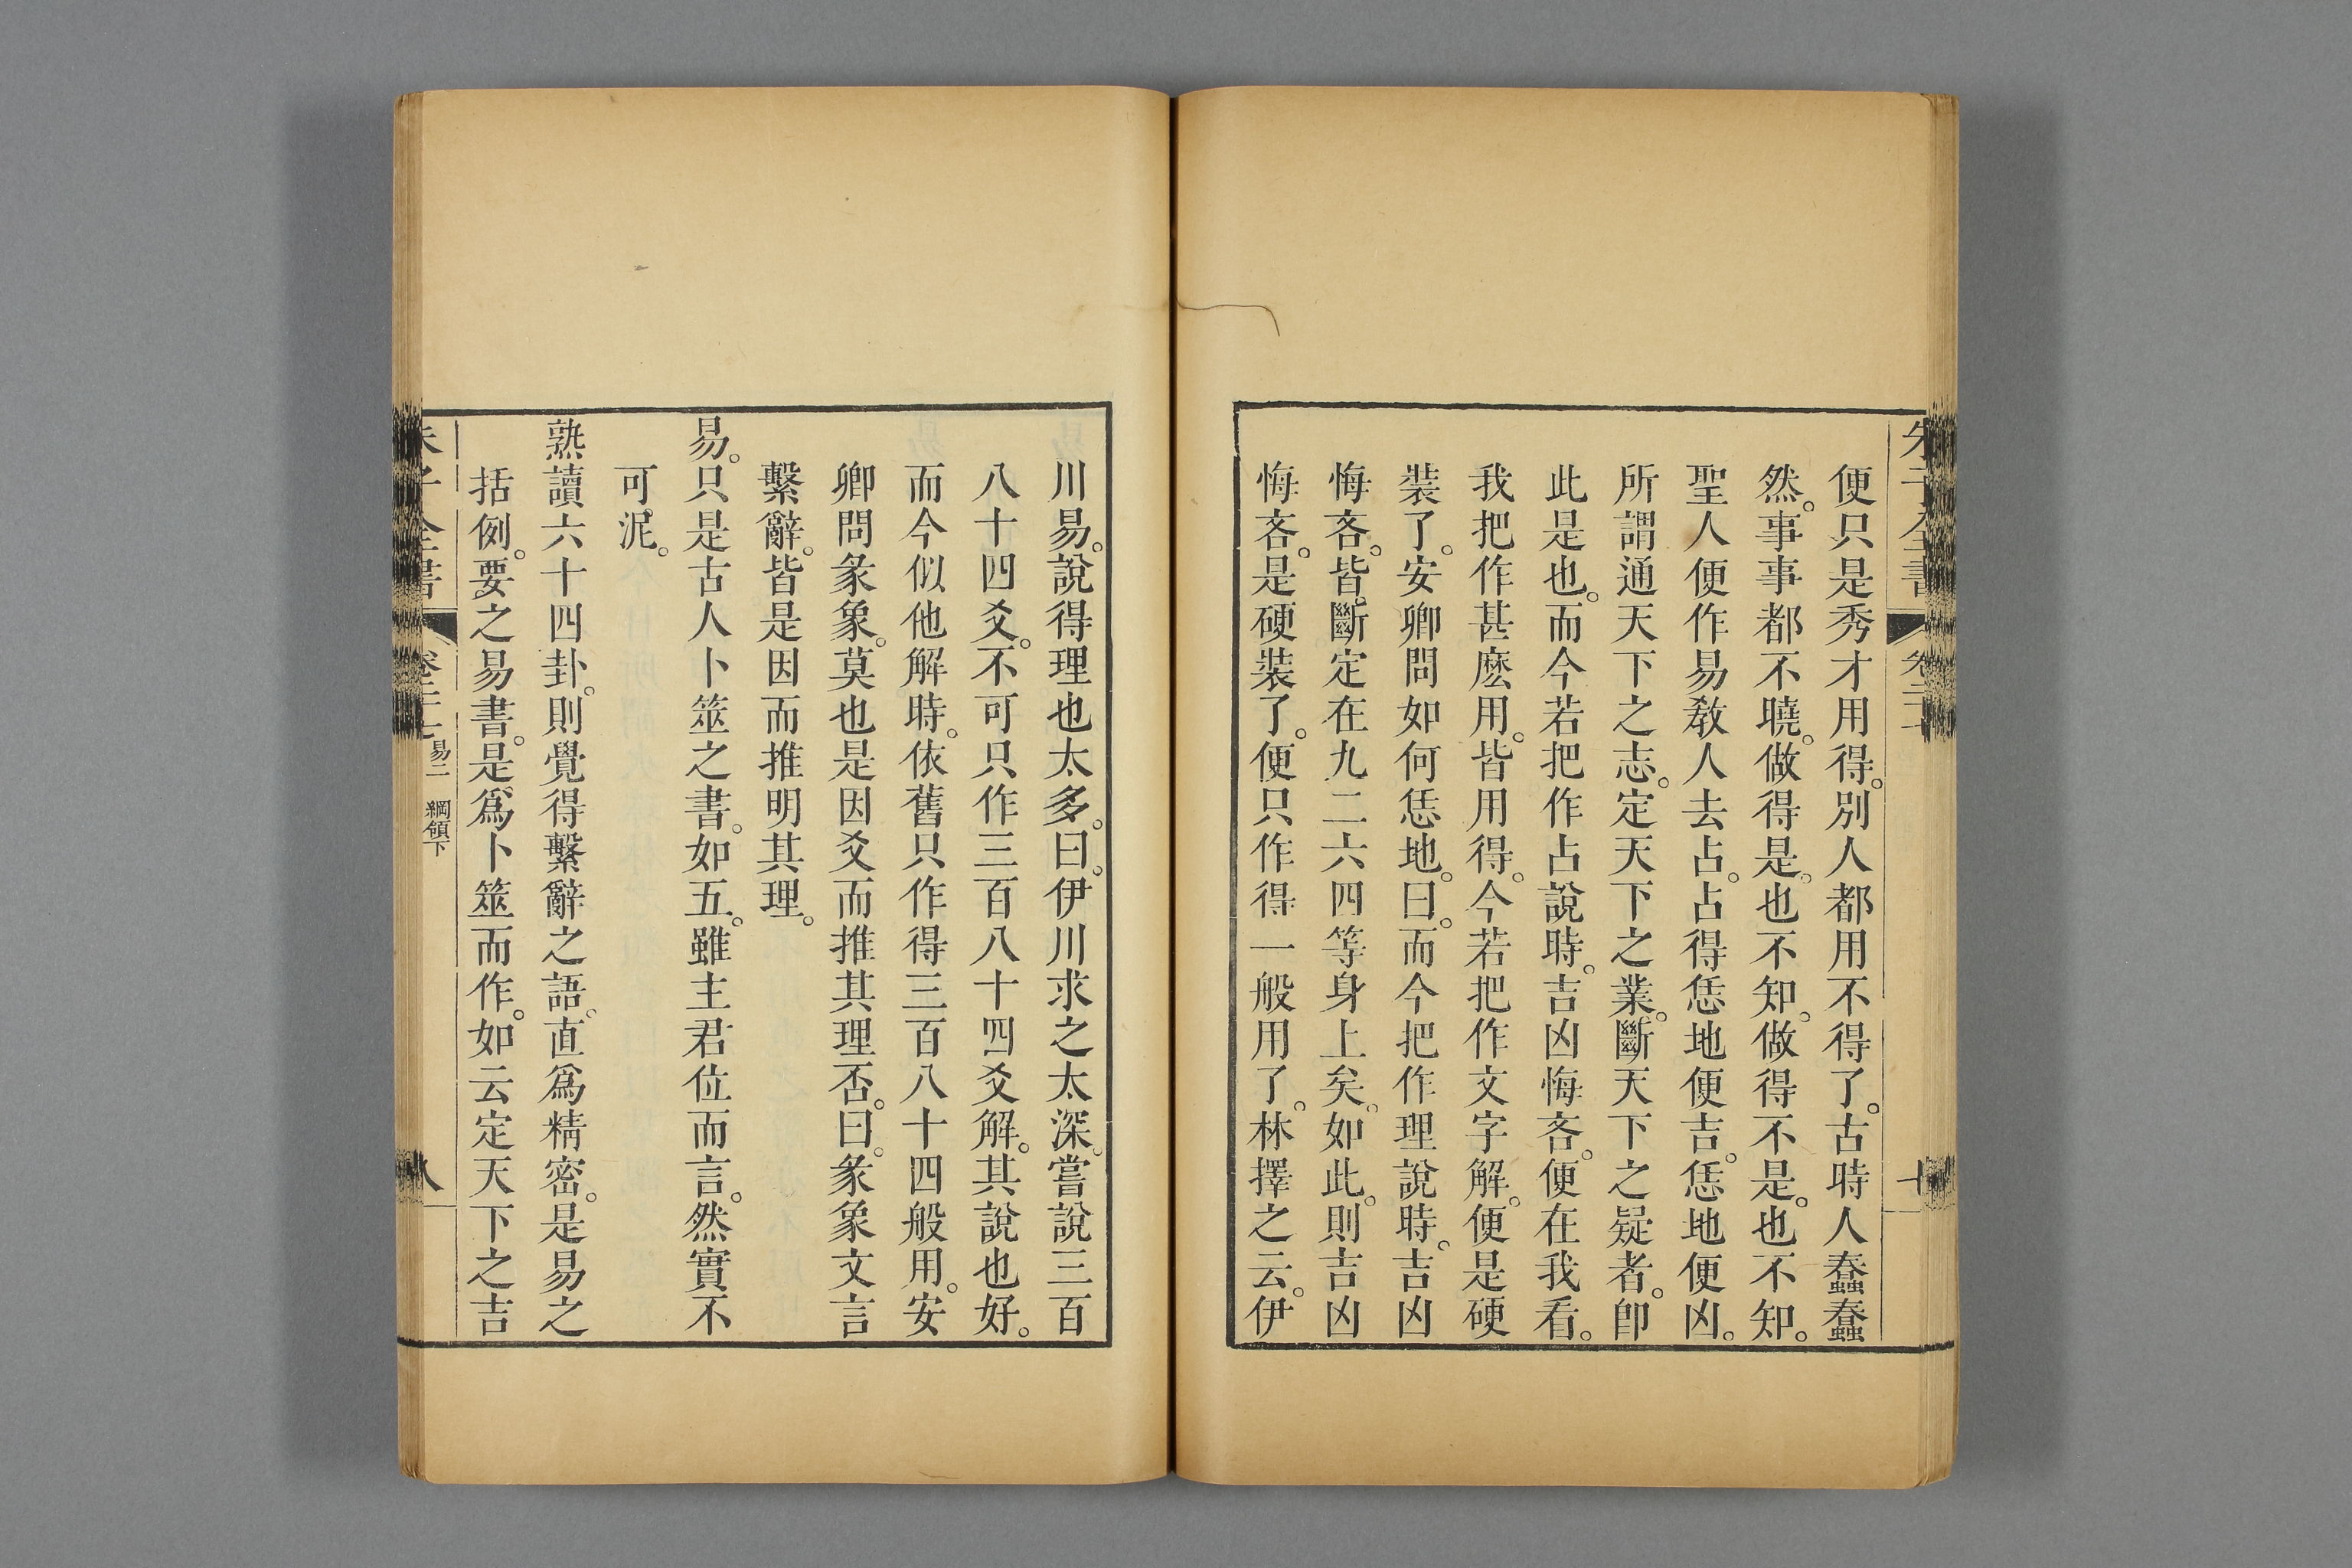 便只是秀才用得。別人都用不得了。古時人蠢蠢
然。事事都不曉。做得是。也不知。做得不是。也不知。
聖人便作易教人去占。占得恁地便吉。恁地便凶。
所謂通天下之志。定天下之業。斷天下之疑者。卽
此是也。而今若把作占說時。吉凶悔吝。便在我看。
我把作甚麽用。皆用得。今若把作文字解。便是硬
裝了。安卿問如何恁地。曰。而今把作理說時。吉凶
悔吝。皆斷定在九二六四等身上矣。如此。則吉凶
悔吝。是硬裝了。便只作得一般用了。林擇之云。伊
川易。說得理也太多。曰。伊川求之太深。嘗說三百
八十四爻。不可只作三百八十四爻解。其說也好。
而今似他解時。依舊只作得三百八十四般用。安
卿問彖象。莫也是因爻而推其理否。曰。彖象文言
繫辭。皆是因而推明其理。
易。只是古人卜筮之書。如五。雖主君位而言。然實不
可泥。
熟讀六十四卦。則覺得繫辭之語。直爲精密。是易之
括例。要之易書。是爲卜筮而作。如云定天下之吉
易二 綱領下